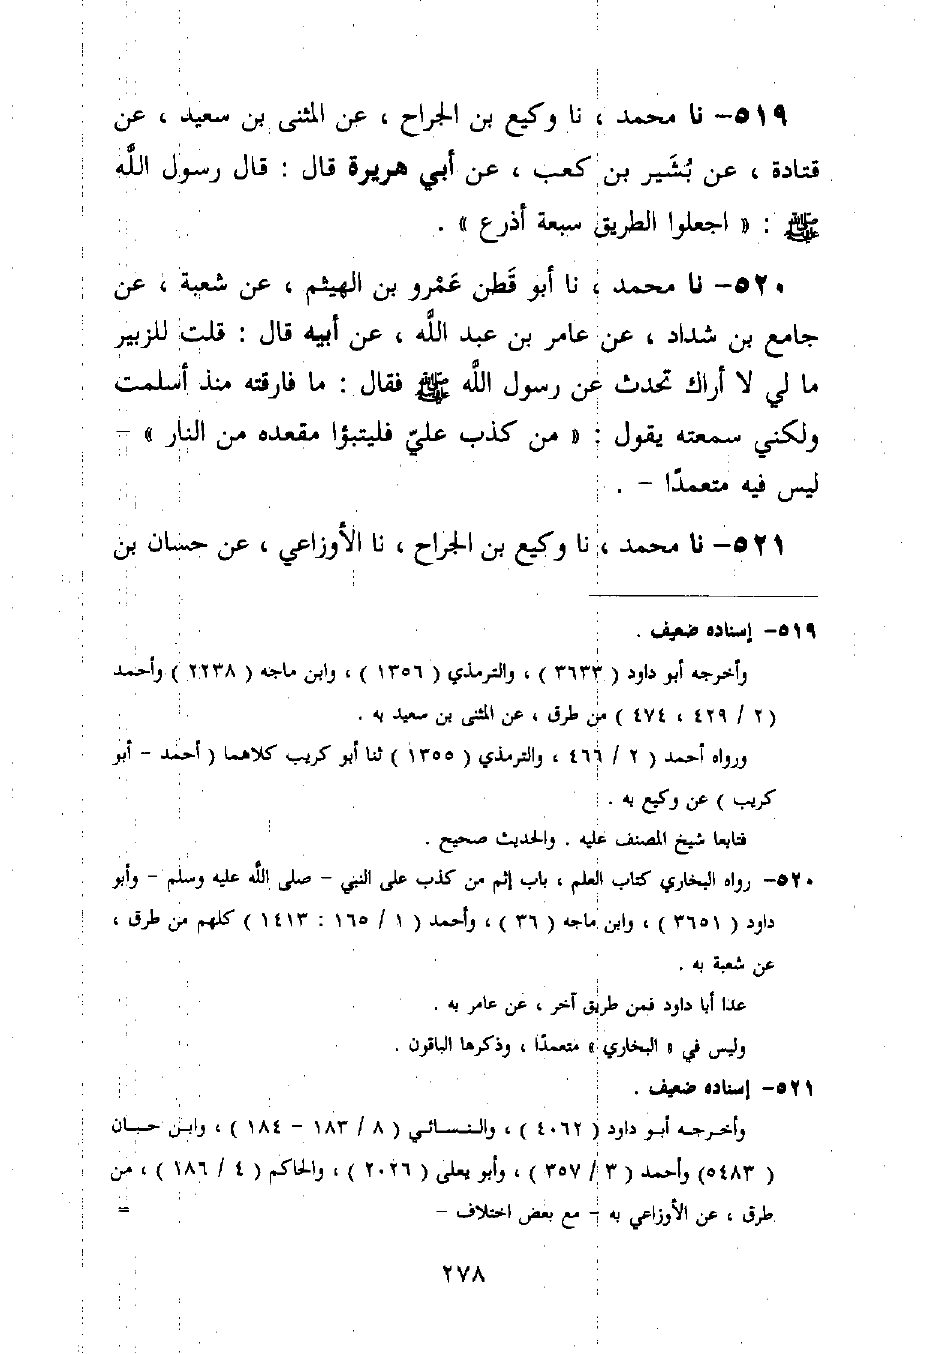 ٥١٩- نا محمد ، نا وكيع بن الجراح ، عن المثنى بن سعيد ، عن
قتادة ، عن بُشَير بن كعب ، عن أبي هريرة قال : قال رسول اللَّه
ﷺ : « اجعلوا الطريق سبعة أذرع » .
٥٢٠- نا محمد ، نا أبو قَطن عَمْرو بن الهيثم ، عن شعبة ، عن
جامع بن شداد ، عن عامر بن عبد اللَّه ، عن أبيه قال : قلت للزبير
ما لي لا أراك تحدث عن رسول اللَّه ﷺ فقال : ما فارقته منذ أسلمت
ولكني سمعته يقول : « من كذب عليّ فليتبؤا مقعده من النار » –
ليس فيه متعمدًا – .
٥٢١- نا محمد ، نا وكيع بن الجراح ، نا الأوزاعي ، عن حسان بن
٥١٩- إسناده ضعيف .
وأخرجه أبو داود ( ٣٦٣٣ ) ، والترمذي ( ١٣٥٦ ) ، وابن ماجه ( ٢٢٣٨ ) وأحمد
( ٢ / ٤٢٩ ، ٤٧٤ ) من طرق ، عن المثنى بن سعيد به .
ورواه أحمد ( ٢ / ٤٦٦ ، والترمذي ( ١٣٥٥ ) ثنا أبو كريب كلاهما ( أحمد – أبو
كريب ) عن وكيع به .
فتابعا شيخ المصنف عليه . والحديث صحيح .
٥٢٠- رواه البخاري كتاب العلم ، باب إثم من كذب على النبي – صلى اللَّه عليه وسلم – وأبو
داود ( ٣٦٥١ ) ، وابن ماجه ( ٣٦ ) ، وأحمد ( ١ / ١٦٥ : ١٤١٣ ) كلهم من طرق ،
عن شعبة به .
عدا أبا داود فمن طريق آخر ، عن عامر به .
وليس في « البخاري » متعمدًا ، وذكرها الباقون .
٥٢١- إسناده ضعيف .
وأخرجه أبو داود ( ٤٠٦٢ ) ، والنسائي ( ٨ / ١٨٣ – ١٨٤ ) ، وابن حبان
( ٥٤٨٣) وأحمد ( ٣ / ٣٥٧ ) ، وأبو يعلى ( ٢٠٢٦ ) ، والحاكم ( ٤ / ١٨٦ ) ، من
طرق ، عن الأوزاعي به – مع بعض اختلاف – =
٢٧٨